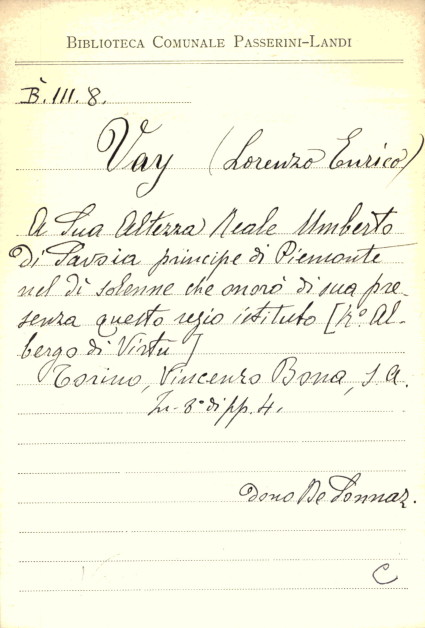 BIBLIOTECA COMUNALE PASSERINI-LANDI
B. III. 8.
Vay (Lorenzo Enrico)
A Sua Altezza Reale Umberto
di Savoia principe di Piemonte
nel dì solenne che onorò di sua pre-
senza questo regio istituto [R.o Al-
bergo di Virtù]
Torino, Vincenzo Bona, s. a.
In-8° di pp. 4.
dono De Sonnaz.
C